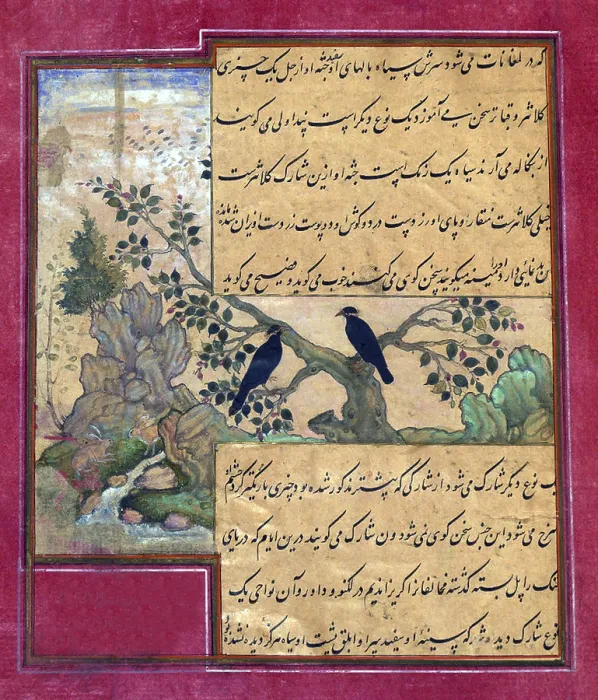 که در لمغانات می شود سرش سیاه بالهای او سفید جثه او از جل یک چیزی
کلانتر و قباتر سخن نمی آموزد یک نوع دیگر است پنداولی می گویند
از بنکاله می آرند سیاه یک رنگ است جثه او ازین شارک کلانترست
خیلی کلانترست منقار او پای او زردست در دو گوش او دو پوست زردست آویزان شده مانده
بدنمائی دارد و مینه میگویند سخن گوی می کنند خوب می گوید و فصیح می گوید
یک نوع دیگر شارک می شود از شارکی که پیشتر مذکور شده بود چیزی باریکتر گرد چشم او
سرخ می شود این جنس سخن گوی نمی شود ون شارک می گویند درین ایام که دریای
گنگ را پل بسته گذشته مخالفان را گریزاندیم در لکنو و داور و آن نواحی یک
نوع شارک دیده شد که سینه او سفید سر او ابلق پشت او سیاه هرگز دیده نشده بود